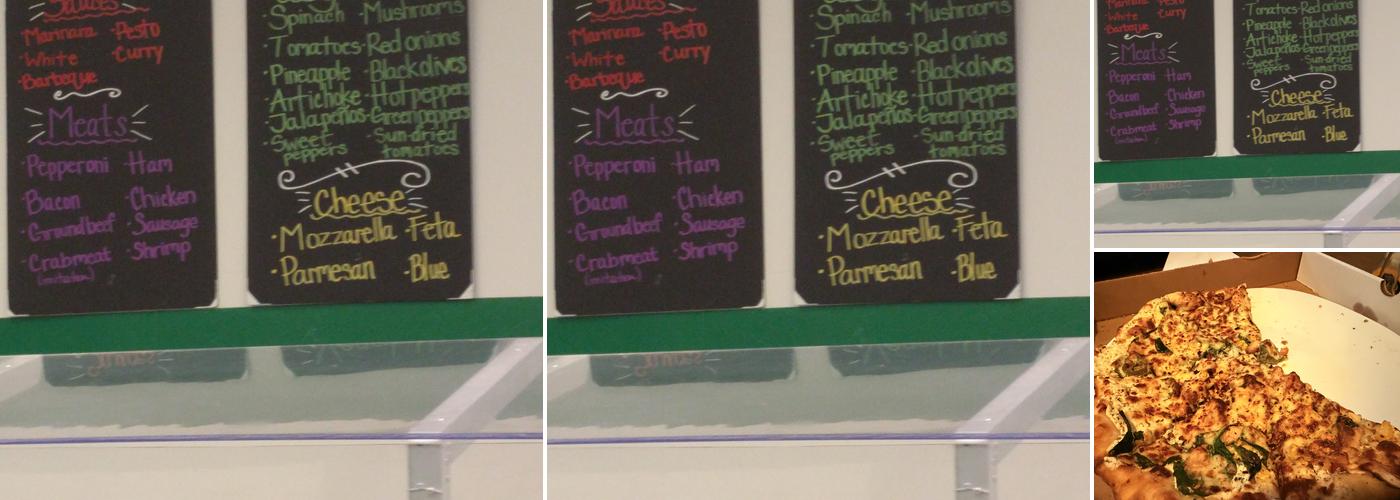 Sauces
·Marinara ·Pesto
·White ·Curry
·Barbeque
Meats
·Pepperoni ·Ham
·Bacon ·Chicken
·Groundbeef ·Sausage
·Crabmeat ·Shrimp
(imitation)
Spinach ·Mushrooms
·Tomatoes ·Red onions
·Pineapple ·Black olives
·Artichoke ·Hot peppers
·Jalapeños ·Green peppers
·Sweet peppers ·Sun-dried tomatoes
Cheese
·Mozzarella ·Feta
·Parmesan ·Blue
Sauces
·Marinara ·Pesto
·White ·Curry
·Barbeque
Meats
·Pepperoni ·Ham
·Bacon ·Chicken
·Groundbeef ·Sausage
·Crabmeat ·Shrimp
(imitation)
Spinach ·Mushrooms
·Tomatoes ·Red onions
·Pineapple ·Black olives
·Artichoke ·Hot peppers
·Jalapeños ·Green peppers
·Sweet peppers ·Sun-dried tomatoes
Cheese
·Mozzarella ·Feta
·Parmesan ·Blue
Marinara ·Pesto
·White ·Curry
·Barbeque
Meats
·Pepperoni ·Ham
·Bacon ·Chicken
·Groundbeef ·Sausage
·Crabmeat ·Shrimp
(imitation)
·Tomatoes ·Red onions
·Pineapple ·Black olives
·Artichoke ·Hot peppers
·Jalapeños ·Green peppers
·Sweet peppers ·Sun-dried tomatoes
Cheese
·Mozzarella ·Feta
·Parmesan ·Blue